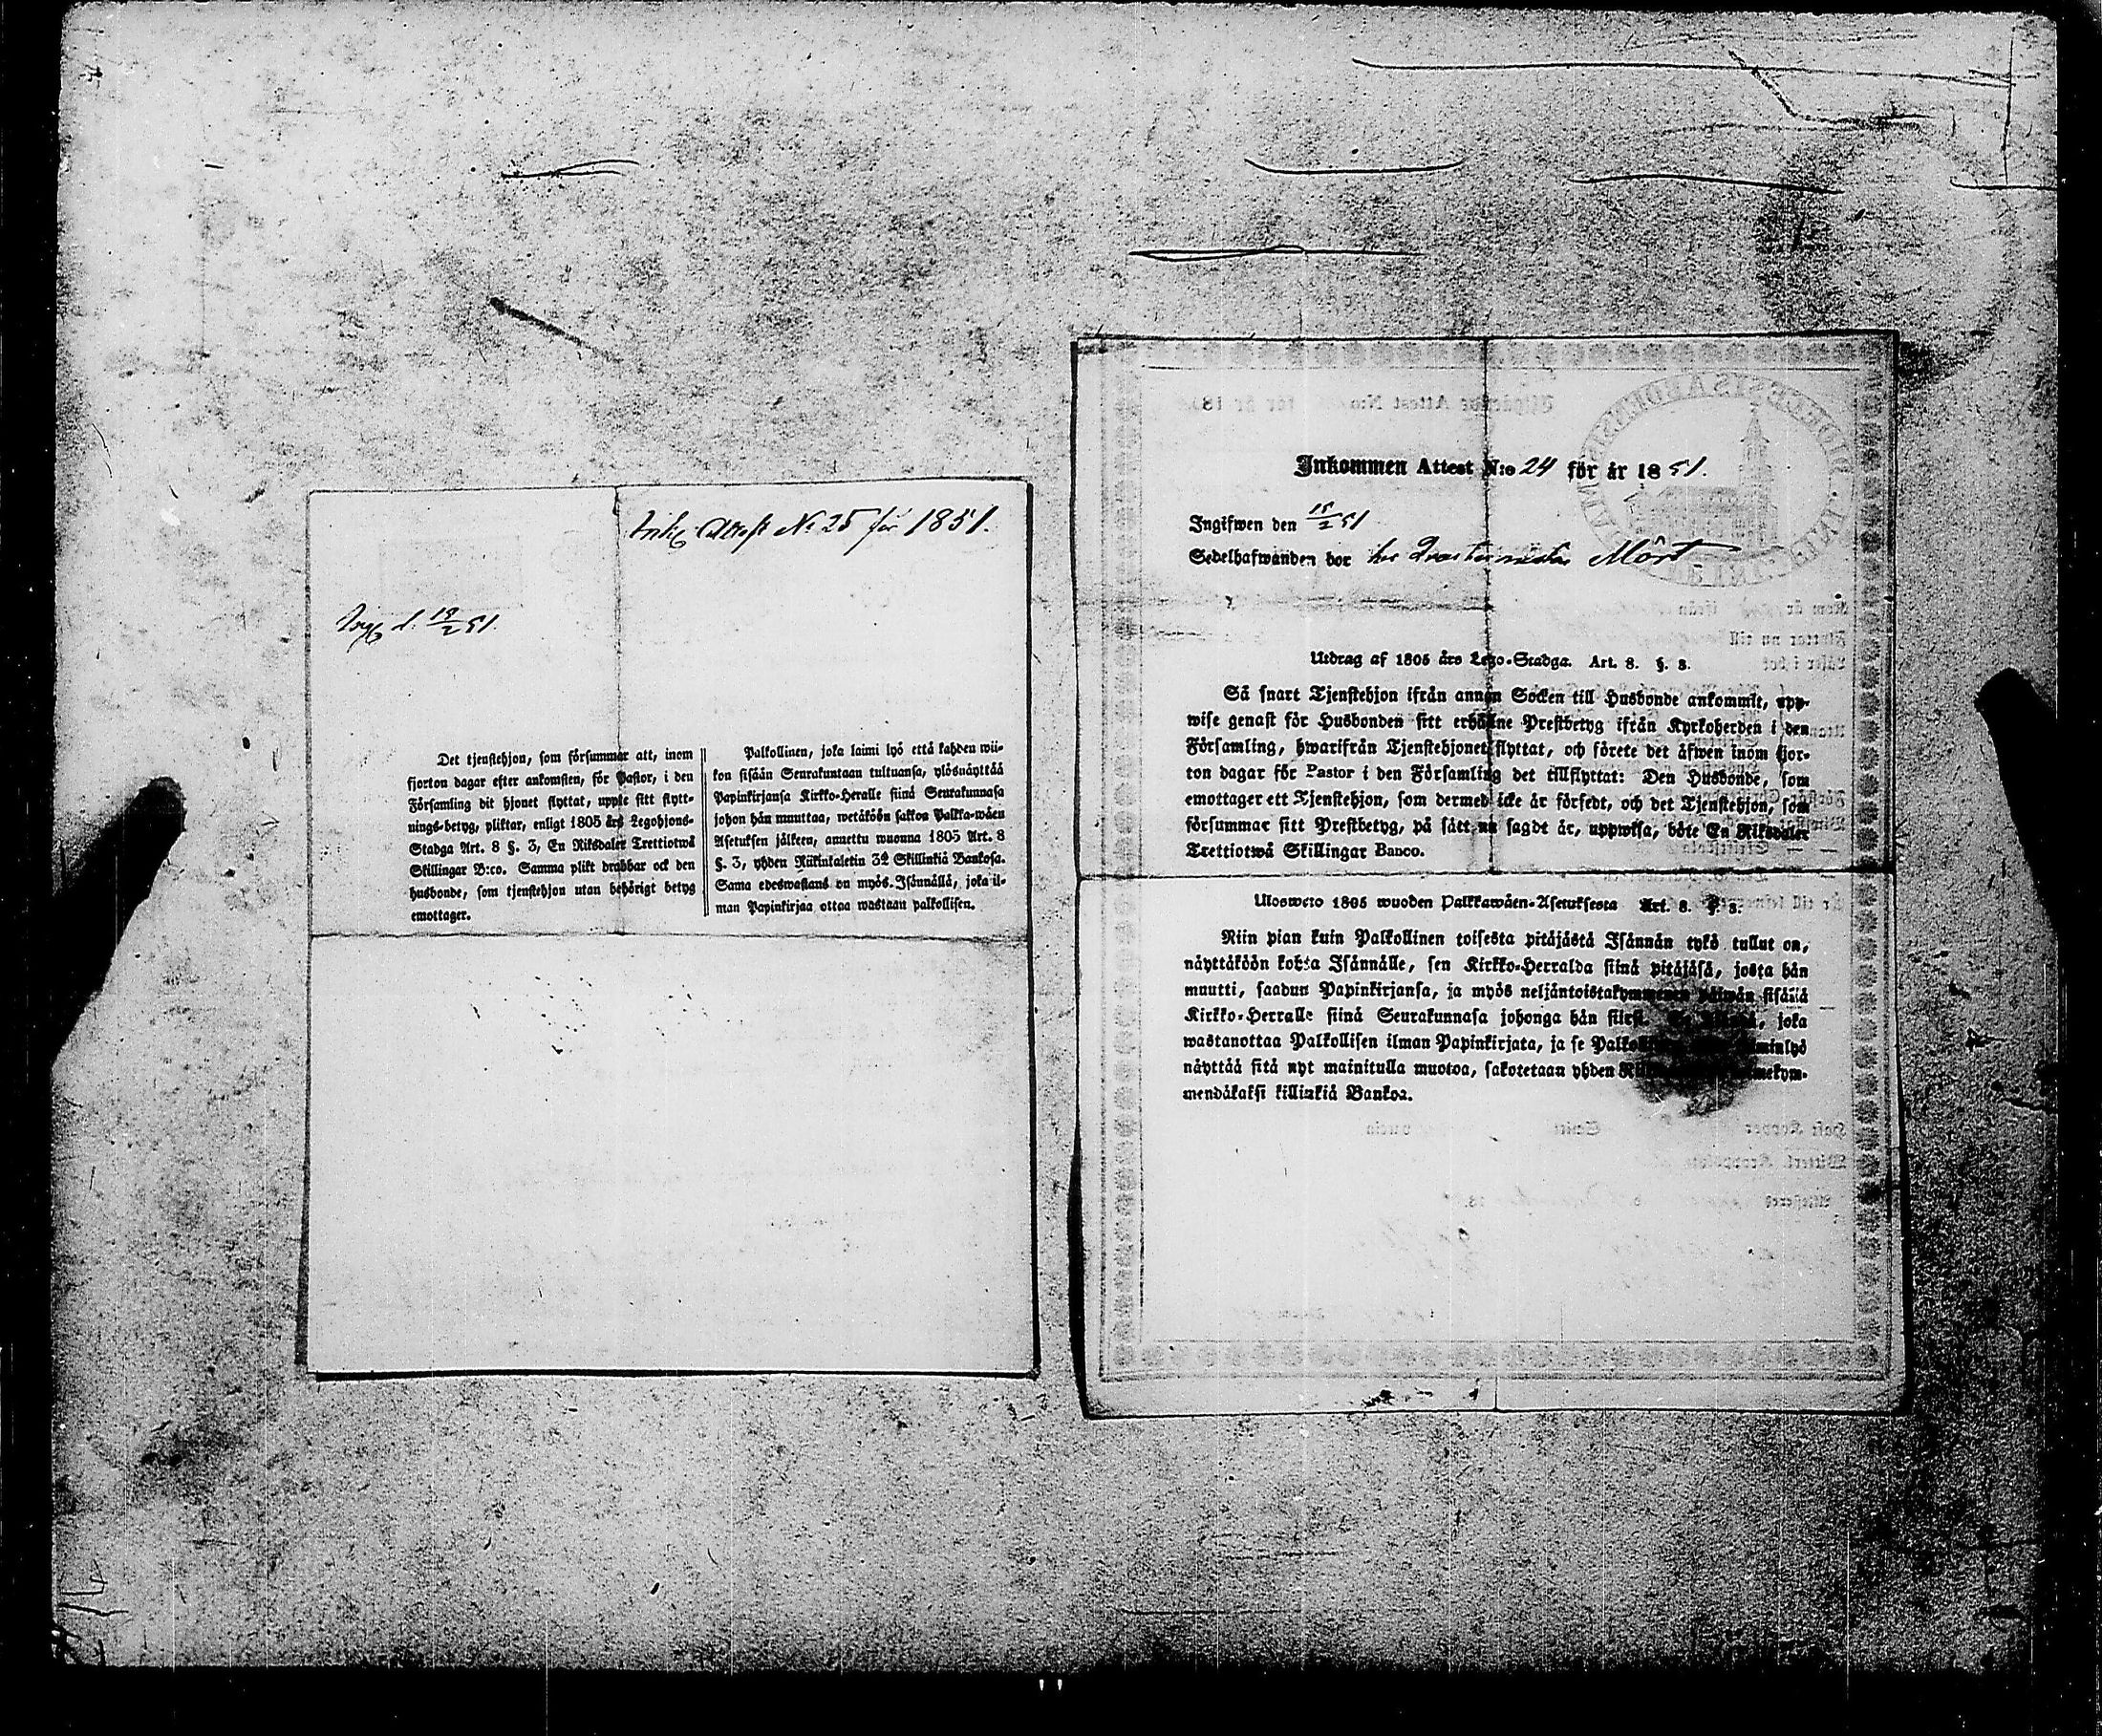 Attest No 25 för 1851.
d. 18/2 51.
Det tjenstehjon, som försummar att, inom
fjorton dagar efter ankomsten, för Pastor, i den
Församling dit hjonet flyttat, uppte sitt flytt-
nings-betyg, pliktar, enligt 1805 års Legohjons-
Stadga Art. 8 §. 3, En Riksdaler Trettiotwå
Skillingar B:co. Samma plikt drabbar ock den
husbonde, som tjenstehjon utan behörigt betyg
emottager.
Palkollinen, joka laimi lyö että kahden wii-
kon sisään Seurakuntaan tultuansa, ylösnäyttää
Papinkirjansa Kirkko-Heralle siinä Seurakunnasa
johon hän muuttaa, wetäköön sakkoa Palkka-wäen
Asetuksen jälkeen, annettu wuonna 1805 Art. 8
§. 3, yhden Riikintaletin 32 Skillinkiä Bankosa.
Sama edeswastaus on myös Isännällä, joka il-
man Papinkirjaa ottaa wastaan palkollisen.
Inkommen Attest N:o 24 för år 1851.
Ingifwen den 15/2 51
Sedelhafwanden bor hos Mört
Utdrag af 1805 års Lego-Stadga. Art. 8. §. 3.
Så snart Tjenstehjon ifrån annan Socken till Husbonde ankommit, upp-
wise genast för Husbonden sitt erhållne Prestbetyg ifrån Kyrkoherden i den
Församling, hwarifrån Tjenstehjonet flyttat, och förete det äfwen inom fjor-
ton dagar för Pastor i den Församling det tillflyttat: Den Husbonde, som
emottager ett Tjenstehjon, som dermed icke är försedt, och det Tjenstehjon, som
försummar sitt Prestbetyg, på sätt nu sagdt är, uppwisa, böte En Riksdaler
Trettiotwå Skillingar Banco.
Ulosweto 1805 wuoden Palkkawäen-Asetuksesta Art. 8. §. 3.
Niin pian kuin Palkollinen toisesta pitäjästä Isännän tykö tullut on,
näyttäköön kohta Isännälle, sen Kirkko-Herralda siinä pitäjäsä, josta hän
muutti, saadun Papinkirjansa, ja myös neljäntoistakymmenen päiwän sisällä
Kirkko-Herralle siinä Seurakunnasa johonga hän siirsi. joka
wastanottaa Palkollisen ilman Papinkirjata, ja se
näyttää sitä nyt mainitulla muotoa, sakotetaan yhden
mendäkaksi killinkiä Bankoa.